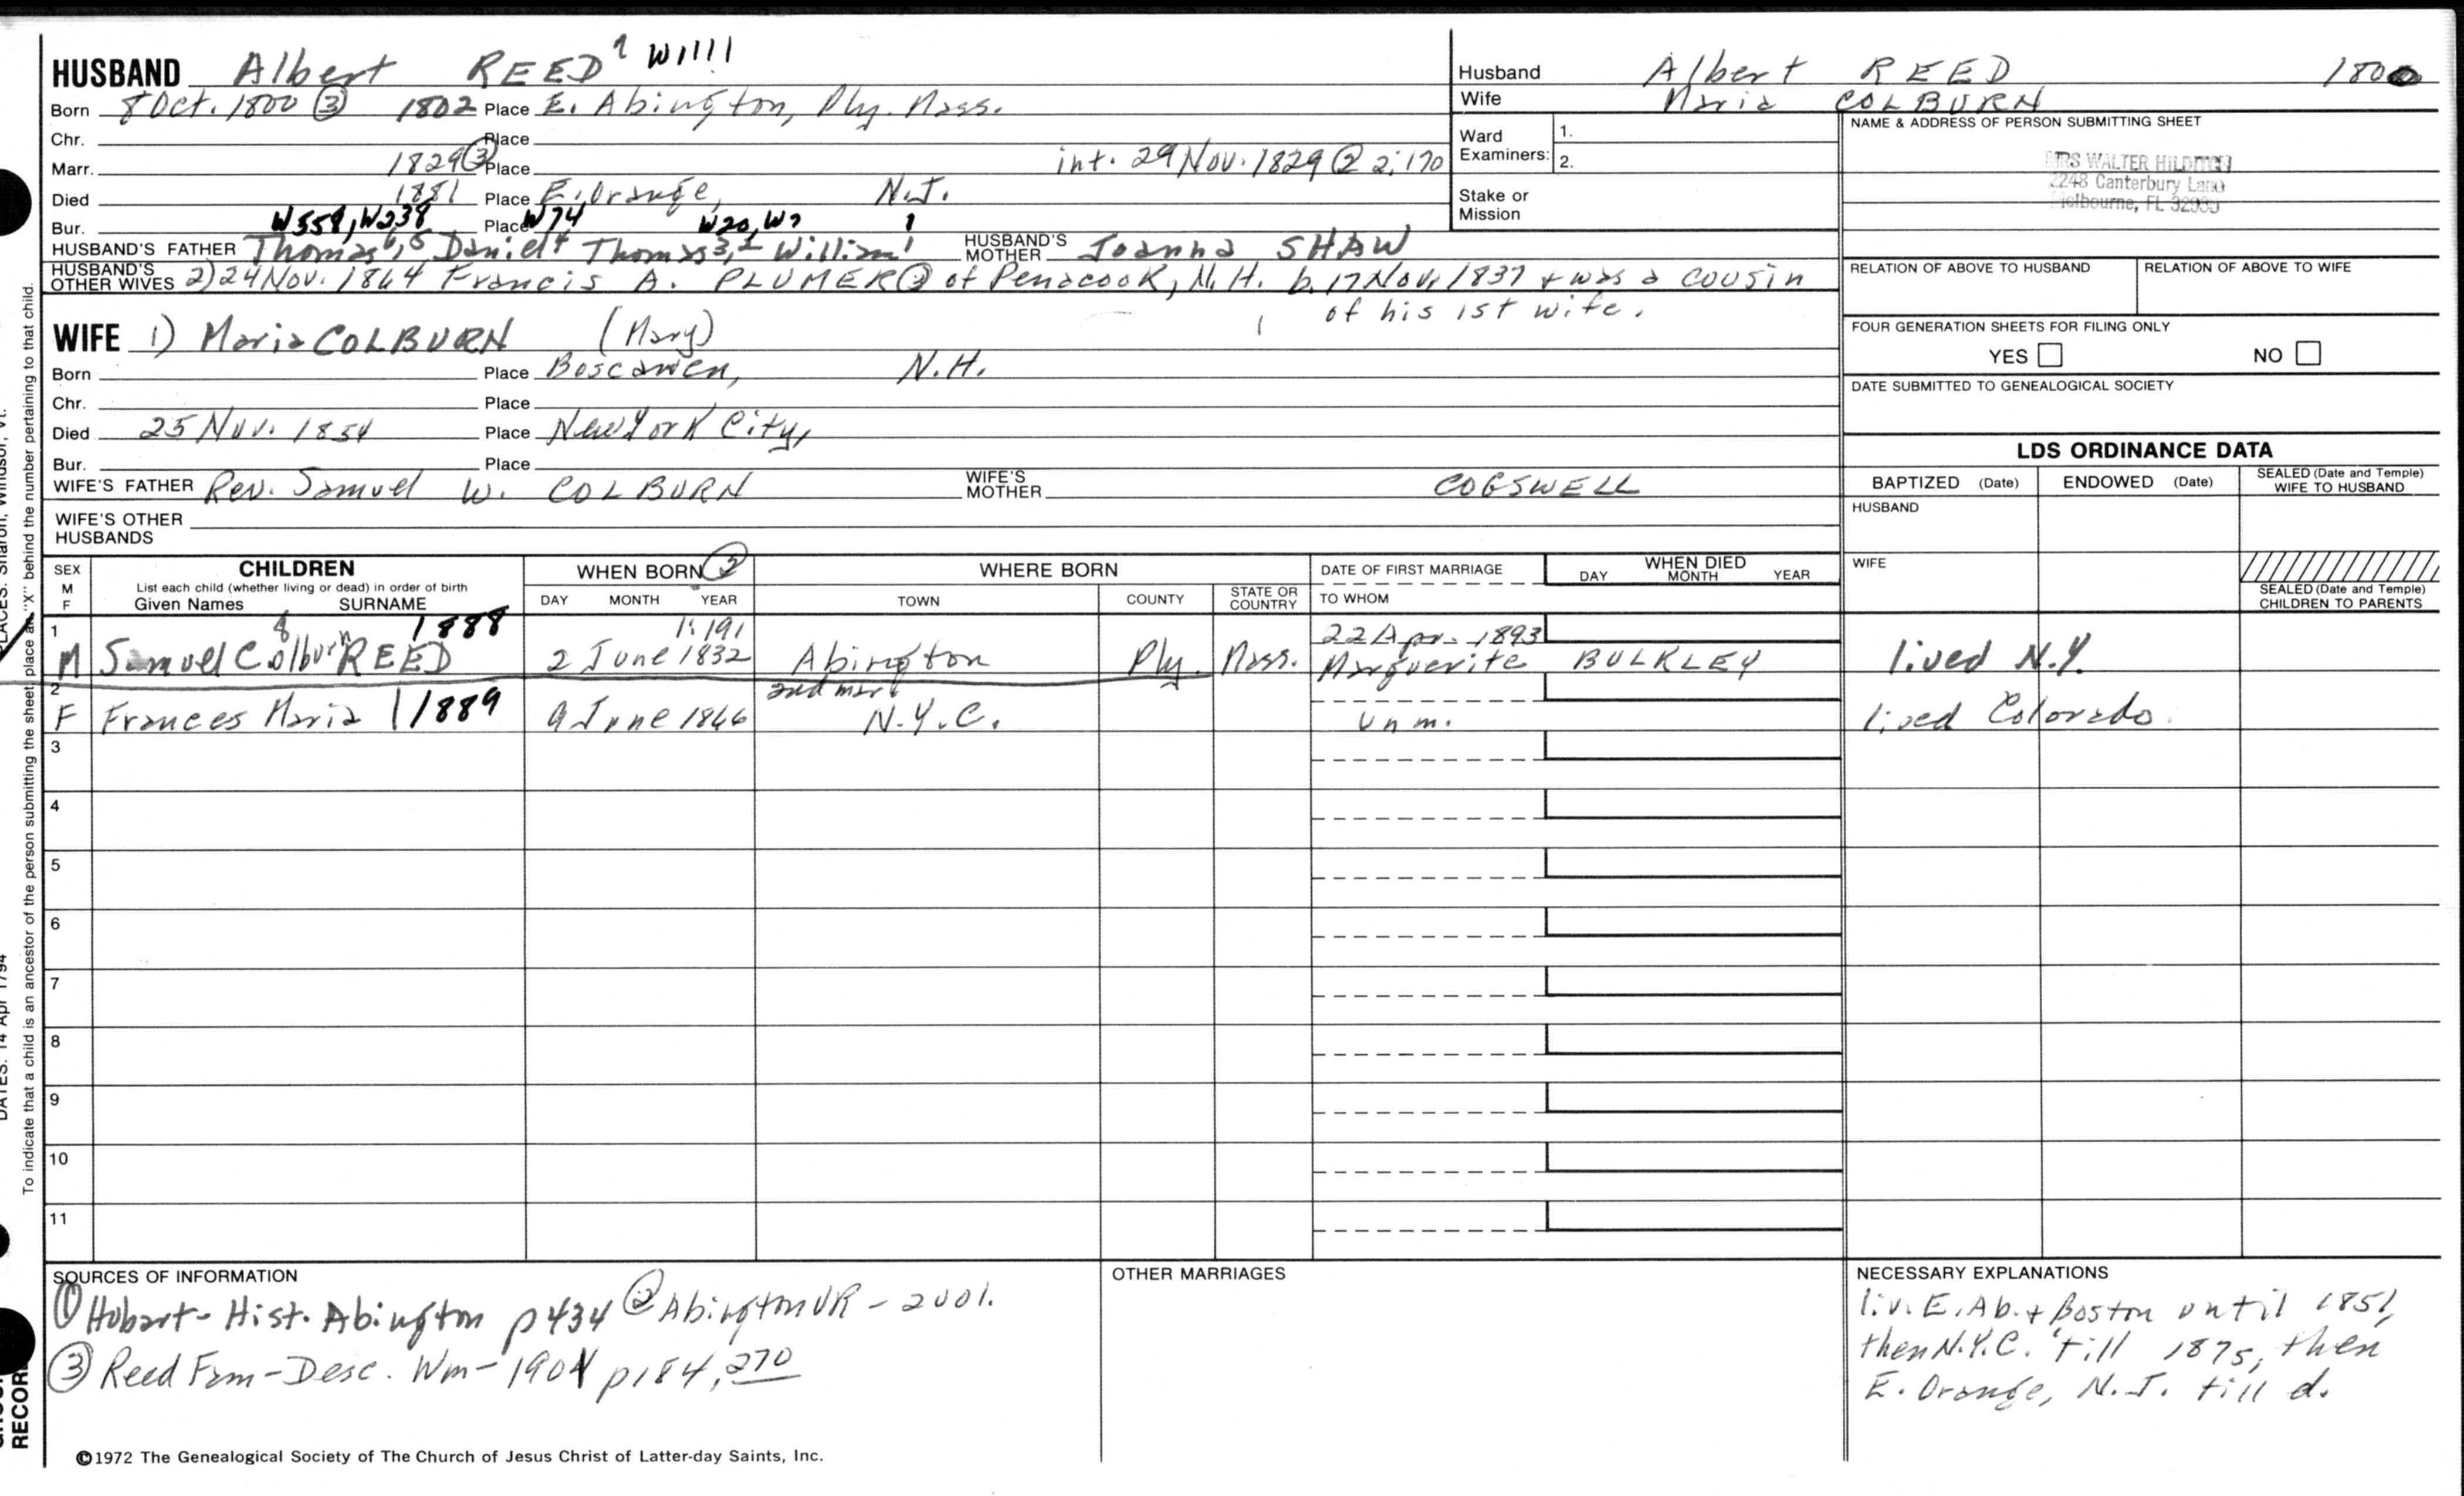 HUSBAND Albert REED W1111
Born 8 Oct. 1800 ③ 1802 Place E. Abington, Ply. Mass.
Chr. Place
Marr. 1829 ③ Place int. 29 Nov. 1829 @ 2:170
Died 1881 Place E. Orange, N.J.
Bur. W558, W238 Place W74 W20, W7 1
HUSBAND'S FATHER Thomas6,5 Daniel4 Thomas3,2 William1 HUSBAND'S MOTHER Joanna SHAW
HUSBAND'S OTHER WIVES 2) 24 Nov. 1864 Francis A. PLUMER ③ of Penacook, N.H. b. 17 Nov. 1837 + was a cousin
of his 1st wife.
WIFE 1) Maria COLBURN (Mary)
Born Place Boscawen, N.H.
Chr. Place
Died 25 Nov. 1854 Place New York City,
Bur. Place
WIFE'S FATHER Rev. Samuel W. COLBURN WIFE'S MOTHER COGSWELL
WIFE'S OTHER HUSBANDS
Husband Albert REED 1800
Wife Maria COLBURN
Ward Examiners: 1.
2.
Stake or Mission
NAME & ADDRESS OF PERSON SUBMITTING SHEET
MRS WALTER HILDITCH
2248 Canterbury Lane
Melbourne, FL
RELATION OF ABOVE TO HUSBAND RELATION OF ABOVE TO WIFE
FOUR GENERATION SHEETS FOR FILING ONLY
YES NO
DATE SUBMITTED TO GENEALOGICAL SOCIETY
LDS ORDINANCE DATA
BAPTIZED (Date) ENDOWED (Date) SEALED (Date and Temple) WIFE TO HUSBAND
HUSBAND
WIFE
SEALED (Date and Temple) CHILDREN TO PARENTS
SEX M F
CHILDREN
List each child (whether living or dead) in order of birth
Given Names SURNAME
WHEN BORN ②
DAY MONTH YEAR
WHERE BORN
TOWN COUNTY STATE OR COUNTRY
DATE OF FIRST MARRIAGE
TO WHOM
WHEN DIED
DAY MONTH YEAR
1 8 1888 1:191 22 Apr. 1893
M Samuel Colburn REED 2 June 1832 Abington Ply. Mass. Marguerite BULKLEY lived N.Y.
2
F Frances Maria 11889 9 June 1846 N.Y.C. Unm. lived Colorado.
3
4
5
6
7
8
9
10
11
SOURCES OF INFORMATION
① Hobart- Hist. Abington p434 ② Abington VR - 2001.
③ Reed Fam - Desc. Wm - 1901 p184, 270
OTHER MARRIAGES
NECESSARY EXPLANATIONS
liv. E. Ab. + Boston until 1851,
then N.Y.C. 'till 1875, then
E. Orange, N.J. till d.
©1972 The Genealogical Society of The Church of Jesus Christ of Latter-day Saints, Inc.
To indicate that a child is an ancestor of the person submitting the sheet, place an "X" behind the number pertaining to that child.
DATES: 14 Apr 1794
PLACES: Sharon, Windsor, Vt.
RECORD